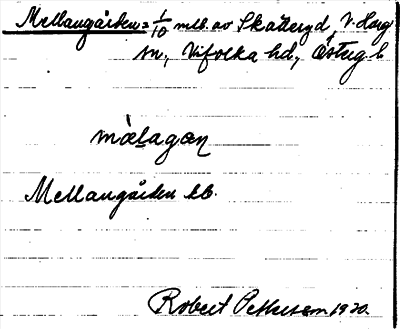 Mellangården = 1/10 mtl. av Skätteryd, V. Harg
sn, Vifolka hd, Östergl
mælagæn
Mellangården bb.
Robert Pettersson 1930.